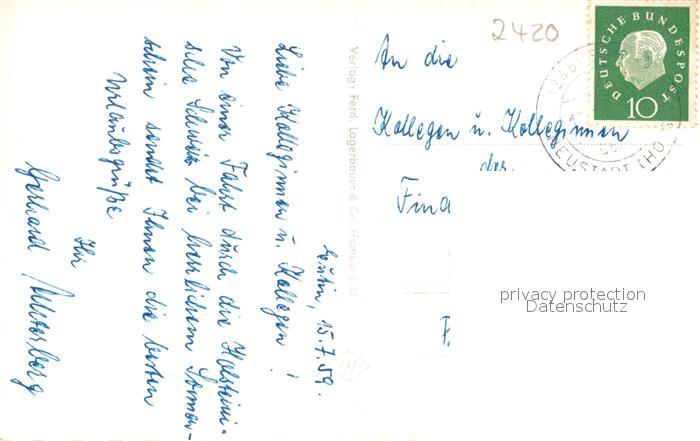 2420
DEUTSCHE BUNDESPOST
10
NEUSTADT (HO
An die
Kollegen u. Kolleginnen
des
Fina
privacy protection
Datenschutz
Verlag: Ferd. Lagerbauer & Co. Hamburg 33
Eutin, 15.7.59.
Liebe Kolleginnen u. Kollegen!
Von einer Fahrt durch die Holsteini-
sche Schweiz bei herrlichem Sonnen-
schein sendet Ihnen die besten
Urlaubsgrüße
Ihr
Gerhard